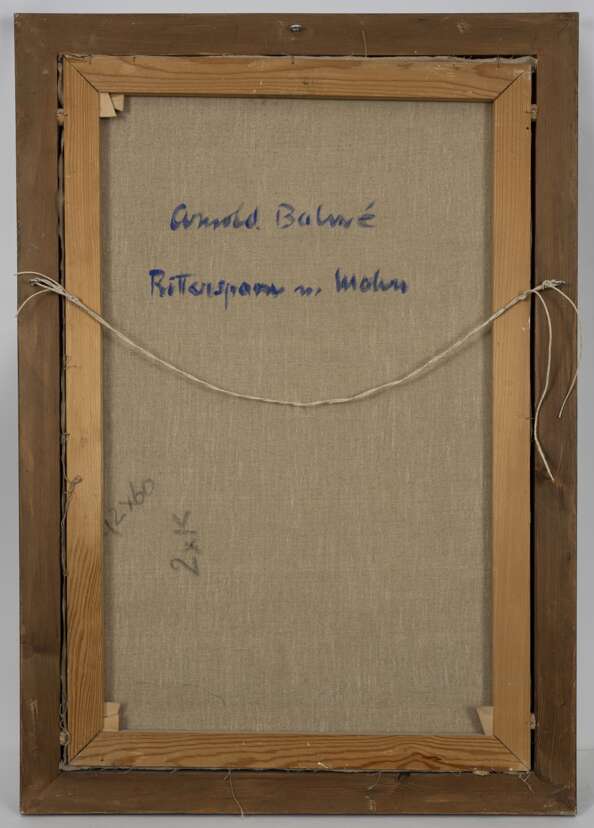 Arnold Balwé
Rittersporn u. Mohn
2 x 1K